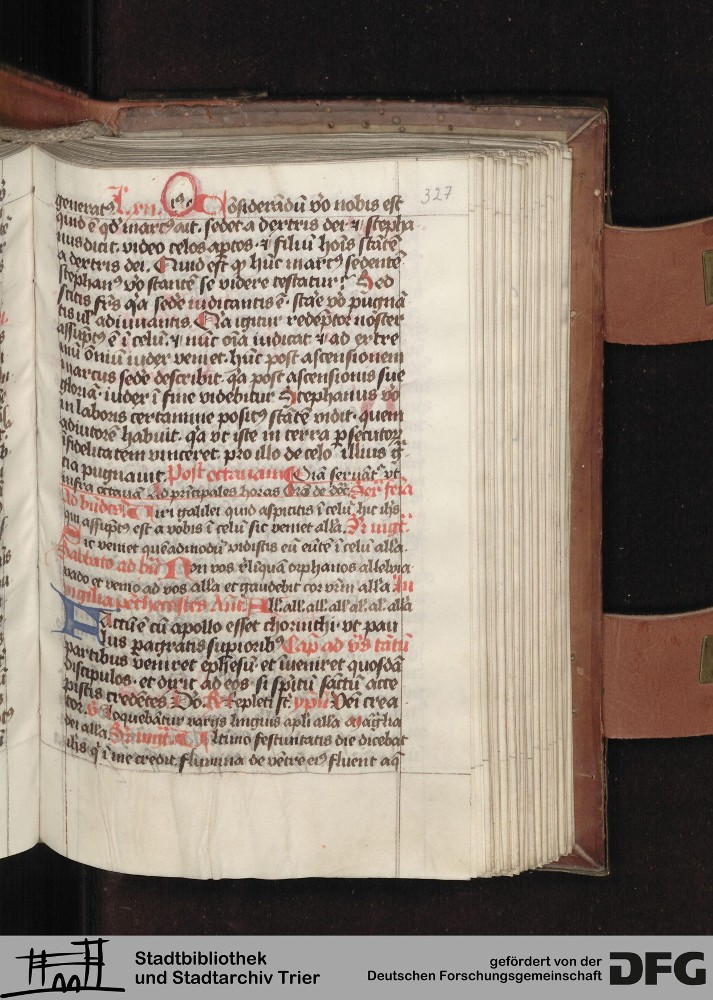 327
generatꝰ Lxn. Oiſ9 Cōſiderādū v̄o nobis est
quid ē qd̓ marcꝰ ait. sedet a dextris dei ⁊ stepha
nus dicit. video celos aptos ⁊ filiū hoīs stātē
a dextris dei. Quid est qꝫ hūc marcꝰ sedentē
stephanꝰ v̄o stantē se videre testatur? Sed
scitis frēs qꝛ sedē iudicantis ē. stāe v̄o pugnā
tis ul̓ adiuuantis. Qꝛ igitur redēptor noster
assūptꝰ ē ī celū. ⁊ nūc oīa iudicat ⁊ ad extre
mū oīm iudex veniet. hūc post ascensionem
marcus sedē describit. qꝛ post ascensionis sue
gloriā. iudex ī fine videbitur Stephanus v̄o
in laboris certamine positꝰ stātē vidit. quem
adiutorē habuit. qꝛ vt iste in terra ꝑsecutoꝝ
īfidelitatem vinceret. pro illo de celo illius ḡ
cia pugnauit. Post octauam Oīa seruāt᷑ vt
infra octauā Ad prīcipales horas
Ad būdcūs Viri galilei quid aspicitis ī celū hic ih̄s
qui assūptꝰ est a vobis ī celū sic veniet all̓a.
Sic veniet quēadmodū vidistis eū eūtē ī celū all̓a.
Sabbato ad bn̄ Non vos relīquā orphanos allelvia
vado et venio ad vos all̓a et gaudebit cor vr̄m all̓a In
vigilia pethecostes Añt. All. all. all. all. al. al. all̓a
Factū ē cū apollo esset chorinthi. vt pau
lus pagratis supiorībꝰ Capl̓ ad vs̄ tātū
partibus veniret ephesū. et īueniret quosdā
discipulos. et dixit ad eos. si spīritū sāctū acce
pistis credētes Do. R Repleti sт. ypn̄ Vēi crea
tor. V Loquebātur varijs linguis apl̓i all̓a Magn̄lia
dei all̓a. Vltimo festiuitatis die dicebat
ih̄s qͥ ī me credit. flumina de vētre eiꝰ fluent aq̄
Stadtbibliothek
und Stadtarchiv Trier
gefördert von der
Deutschen Forschungsgemeinschaft
DFG